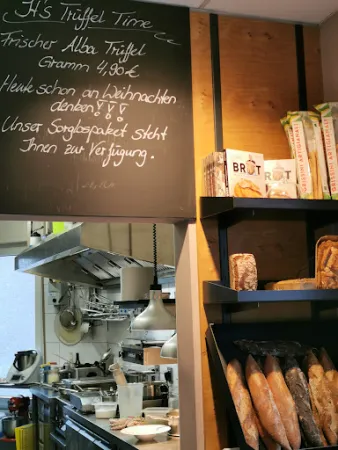 It's Trüffel Time
Frischer Alba Trüffel
Gramm 4,90€
Heute schon an Weihnachten
denken!!!
Unser Sorglospaket steht
Ihnen zur Verfügung.
BROT